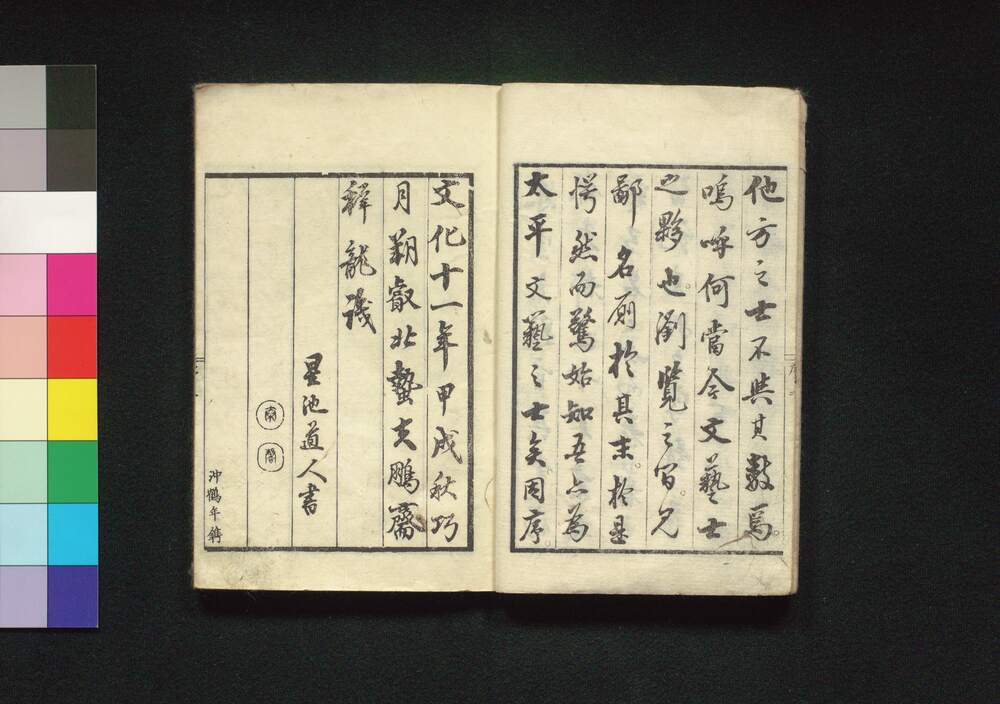 他方之士不與其數焉。
嗚呼何當今文藝士
之夥也。瀏覽之間。見
鄙名廁於其末。於是
愕然而驚始知吾亦為
太平文藝之士矣因序。
文化十一年甲戌秋巧
月朔叡北蟄夫鵬齋
釋龍護
星池道人書
沖鶴年鐫